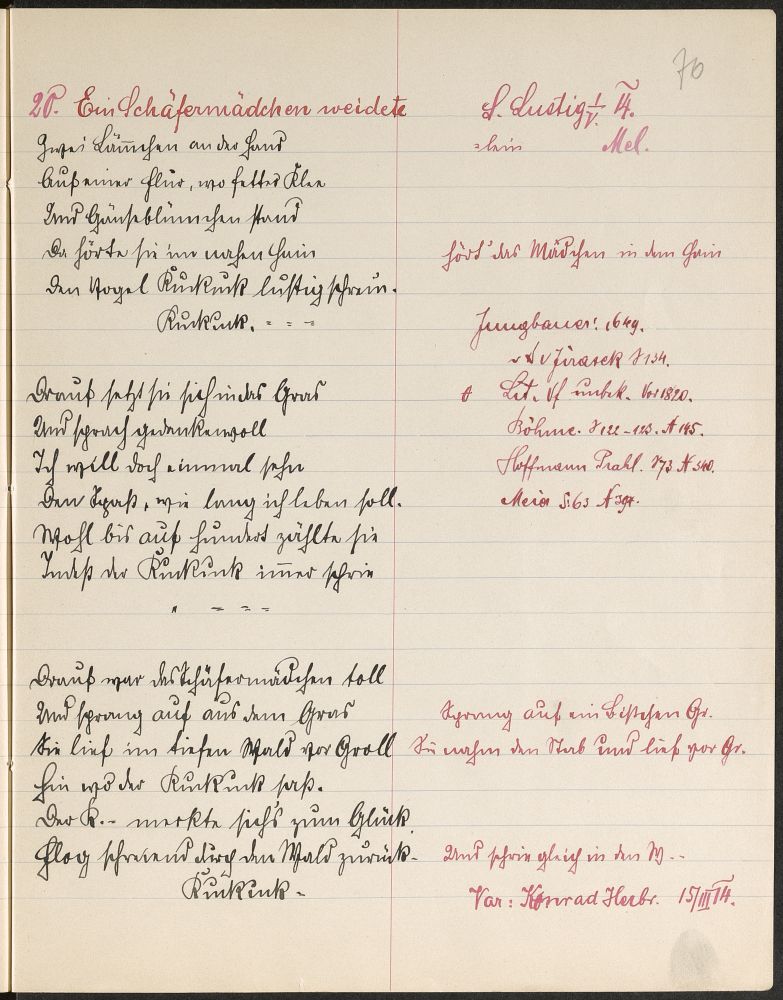 70
20. Ein Schäfermädchen weidete
Zwei Lämmchen an der Hand
Auf einer Flur, wo fetter Klee
Und Gänseblümchen stand
Da hörte sie im nahen Hain
Den Vogel Kuckuck lustig schrein.
Kuckuck. = = =
Drauf setzt sie sich in das Gras
Und sprach gedankenvoll
Ich will doch einmal sehn
Den Spaß, wie lang ich leben soll.
Wohl bis auf hundert zählte sie
Indeß der Kuckuck immer schrie
" = = =
Drauf war das Schäfermädchen toll
Und sprang auf aus dem Gras
Sie lief im tiefen Wald vor Groll
Hin wo der Kuckuck saß.
Der K.-- merkte sich's zum Glück
Flog schreiend durch den Wald zurück.
Kuckuck -
S. Lustig 1/V. 14.
=lein Mel.
hört' das Mädchen in dem Hain
Jungbauer: 1649.
Jirasek S 134.
Lit. Vf unbek. Vor 1820.
Böhme. S 122-123. N 145.
Hoffmann Prahl. S 73 N 340.
Meier S: 63 N 394.
Sprang auf ein Bischen Gr.
Sie nahm den Stab und lief vor Gr.
Und schrie gleich in den W --
Var: Konrad Herbr. 15/III 14.